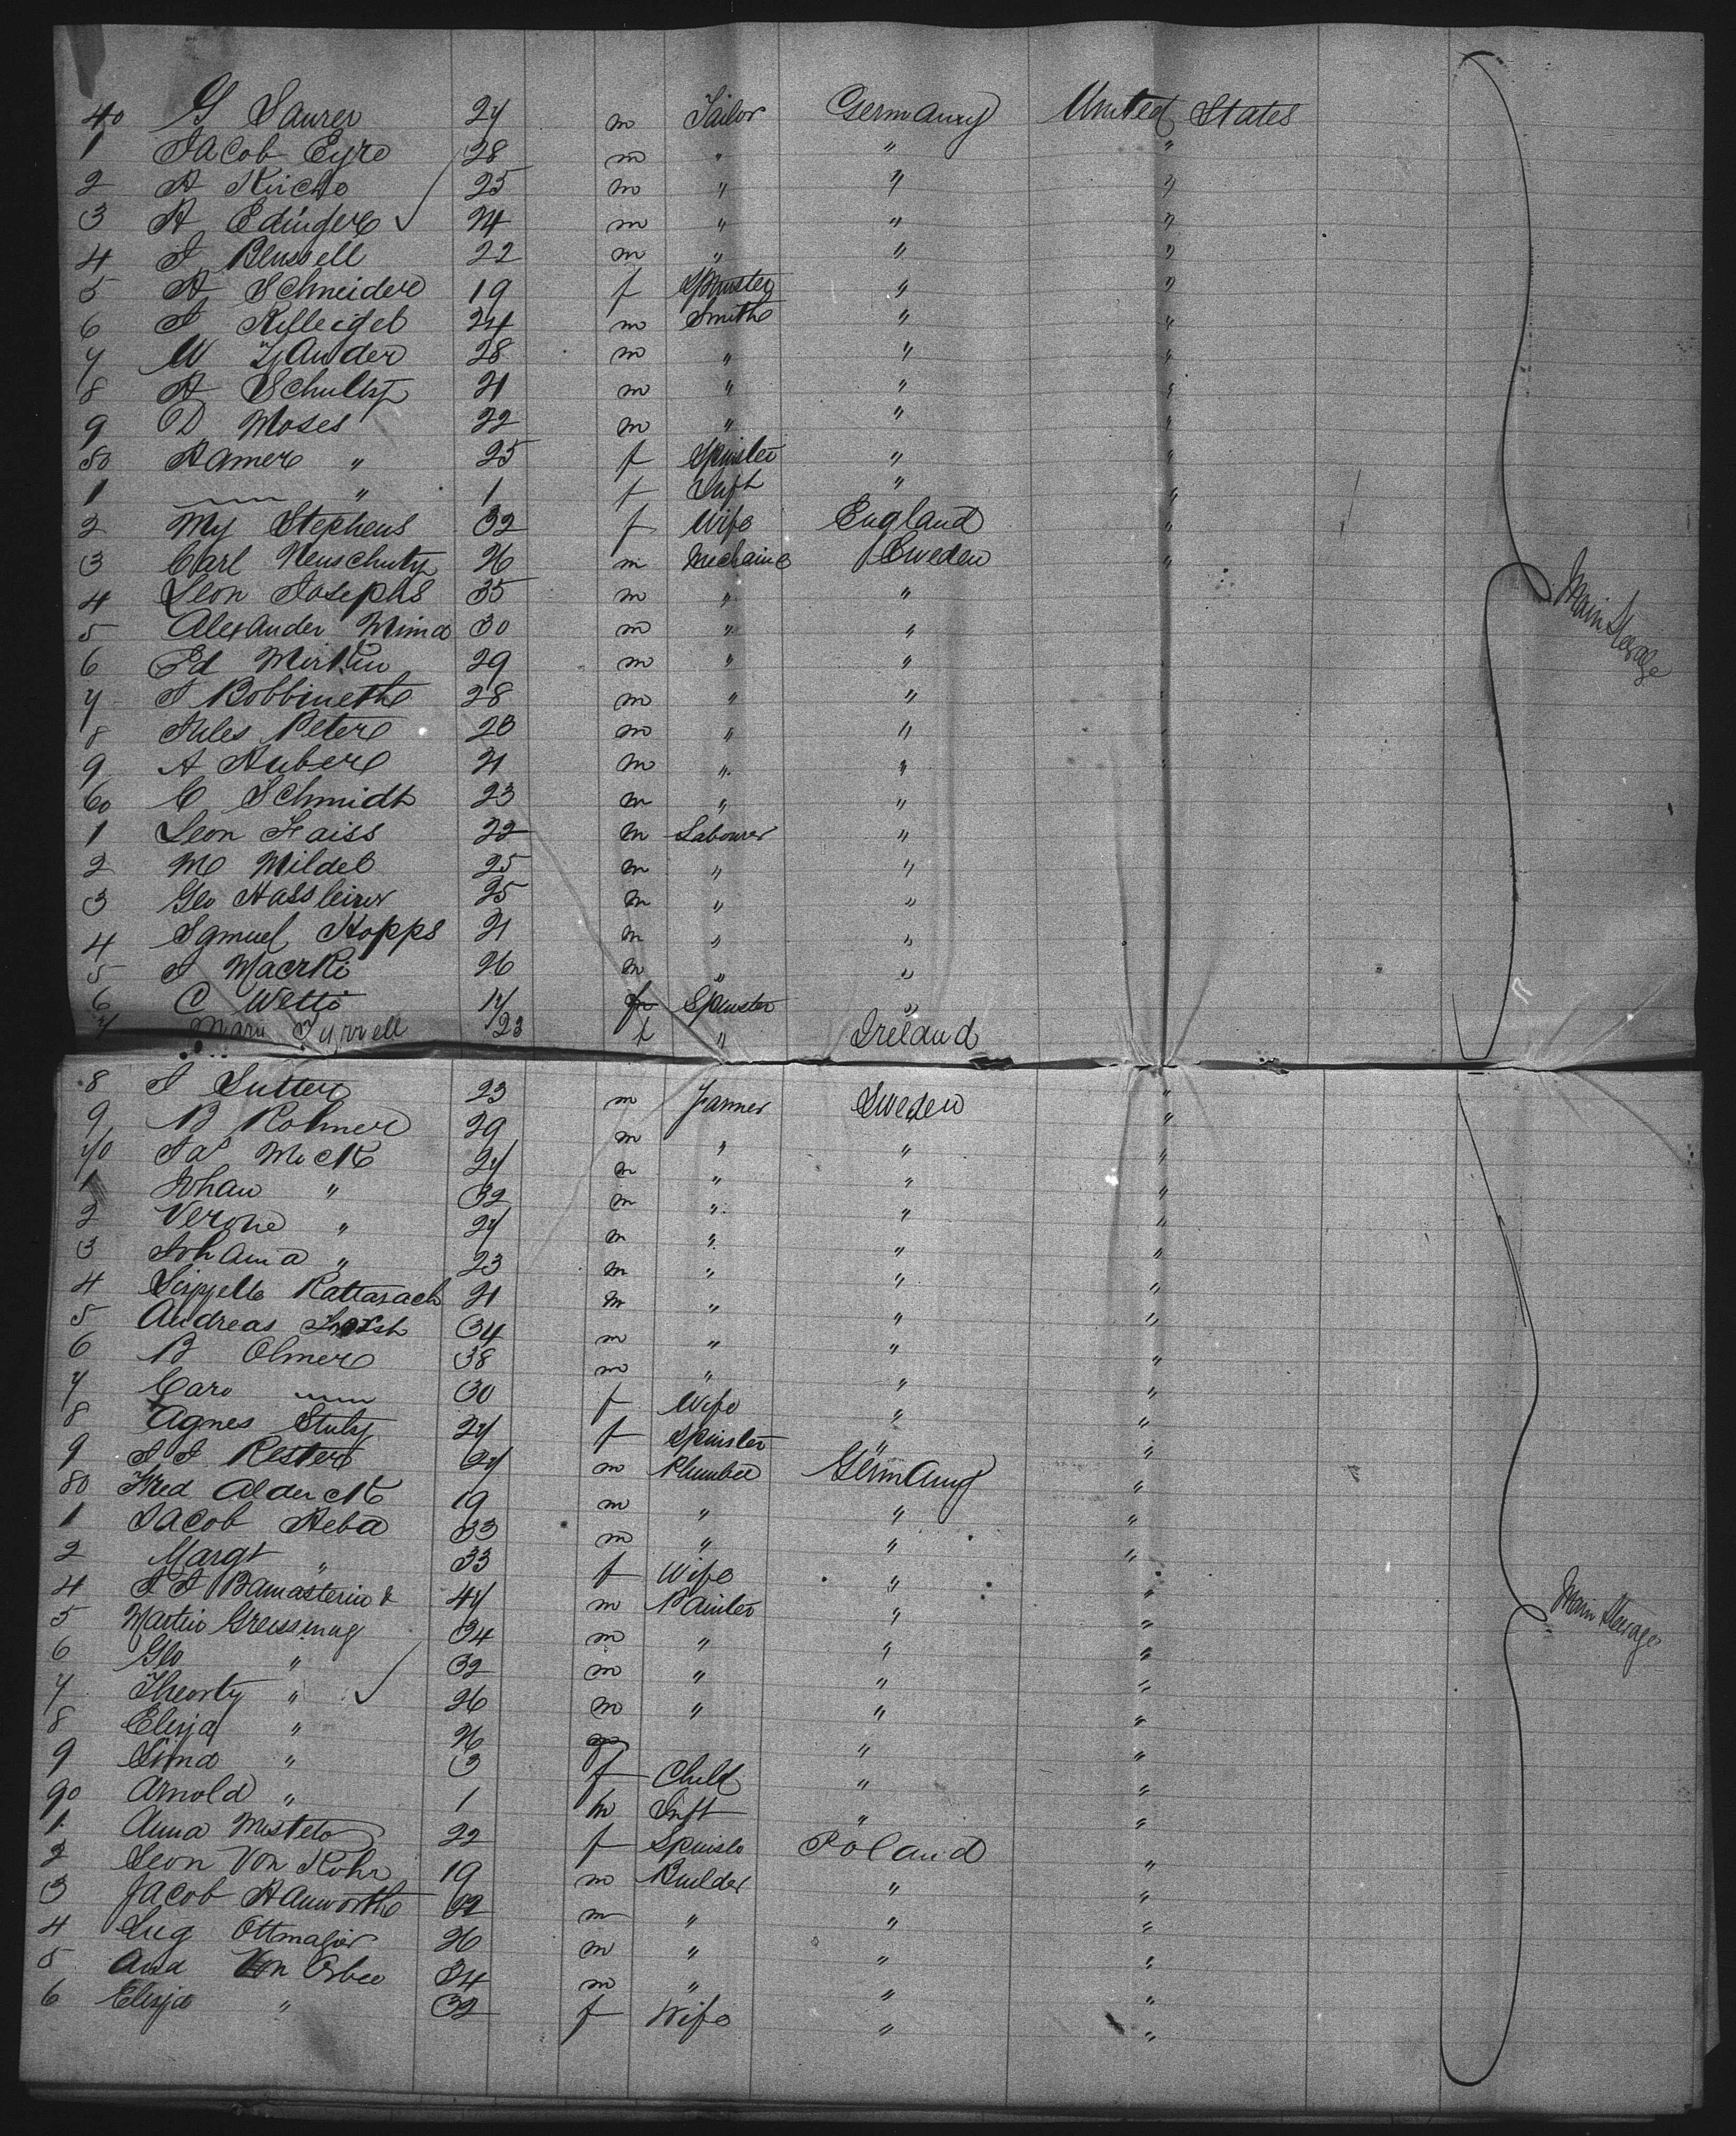 40 G Saurer 27 m Tailor Germany United States
1 Jacob Eyre 28 m " " "
2 A Kirche 25 m " " "
3 A Edinger 24 m " " "
4 J Blussell 22 m " " "
5 A Schneider 19 f Spinster " "
6 J Killeigel 24 m Smith " "
7 W Zander 28 m " " "
8 A Schultz 21 m " " "
9 D Moses 22 m " " "
50 Hamer " 25 f Spinster " "
1 " 1 f Inft " "
2 My Stephens 32 f Wife England "
3 Carl Neuschutz 26 m Mechanic Sweden "
4 Leon Josephs 35 m " "
5 Alexander Mima 30 m " "
6 Ed Mirkin 29 m " "
7 J Bobbineth 28 m " "
8 Jules Peter 28 m " "
9 A Huber 21 m " "
60 C Schmidt 23 m " "
1 Leon Haiss 22 m Labourer "
2 M Mildel 25 m " "
3 Geo Hassleirer 25 m " "
4 Samuel Hopps 21 m " "
5 J Maerki 26 m " "
6 C Wetti 17 f Spinster "
7 Mary Tyrrell 23 f " Ireland
Main Steerage
8 J Sutter 23 m Farmer Sweden "
9 B Rohner 29 m " " "
70 Jas Mock 27 m " " "
1 Johan " 32 m " " "
2 Verone " 27 m " " "
3 Johana " 23 m " " "
4 Seppelle Rattasach 21 m " " "
5 Andreas 34 m " " "
6 B Olmer 38 m " " "
7 Caro 30 f Wife " "
8 Agnes Stulz 27 f Spinster " "
9 J J Rester 27 m Plumber Germany "
80 Fred Alder 19 m " " "
1 Jacob Heba 33 m " " "
2 Margt " 33 f Wife " "
4 J J 47 m Painter " "
5 Martin Greissing 34 m " " "
6 Geo " 32 m " " "
7 " 26 m " " "
8 Eliza " 26 " "
9 Lina " 3 f Child " "
90 Arnold " 1 m Inft " "
1 Anna Misteto 22 f Spinster Poland "
2 Leon Von Rohr 19 m Builder " "
3 Jacob Hanworth 22 m " " "
4 Lug Ottmajer 26 m " " "
5 And Von Orbee 34 m " " "
6 Eliza " 32 f Wife " "
Main Steerage